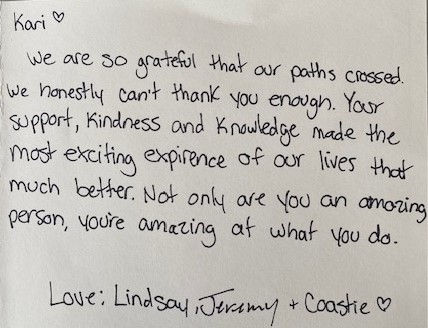 Kari ♡
We are so grateful that our paths crossed.
We honestly can't thank you enough. Your
support, kindness and knowledge made the
most exciting expirence of our lives that
much better. Not only are you an amazing
person, you're amazing at what you do.
Love: Lindsay, Jeremy + Coastie ♡